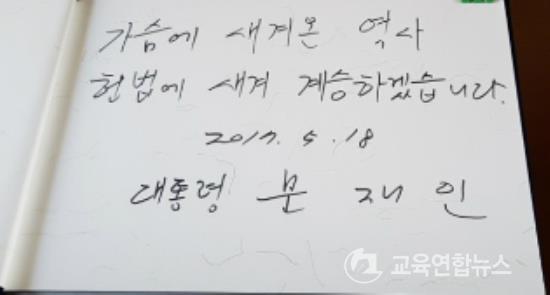 가슴에 새겨온 역사
헌법에 새겨 계승하겠습니다.
2017. 5. 18
대통령 문 재 인
교육연합뉴스